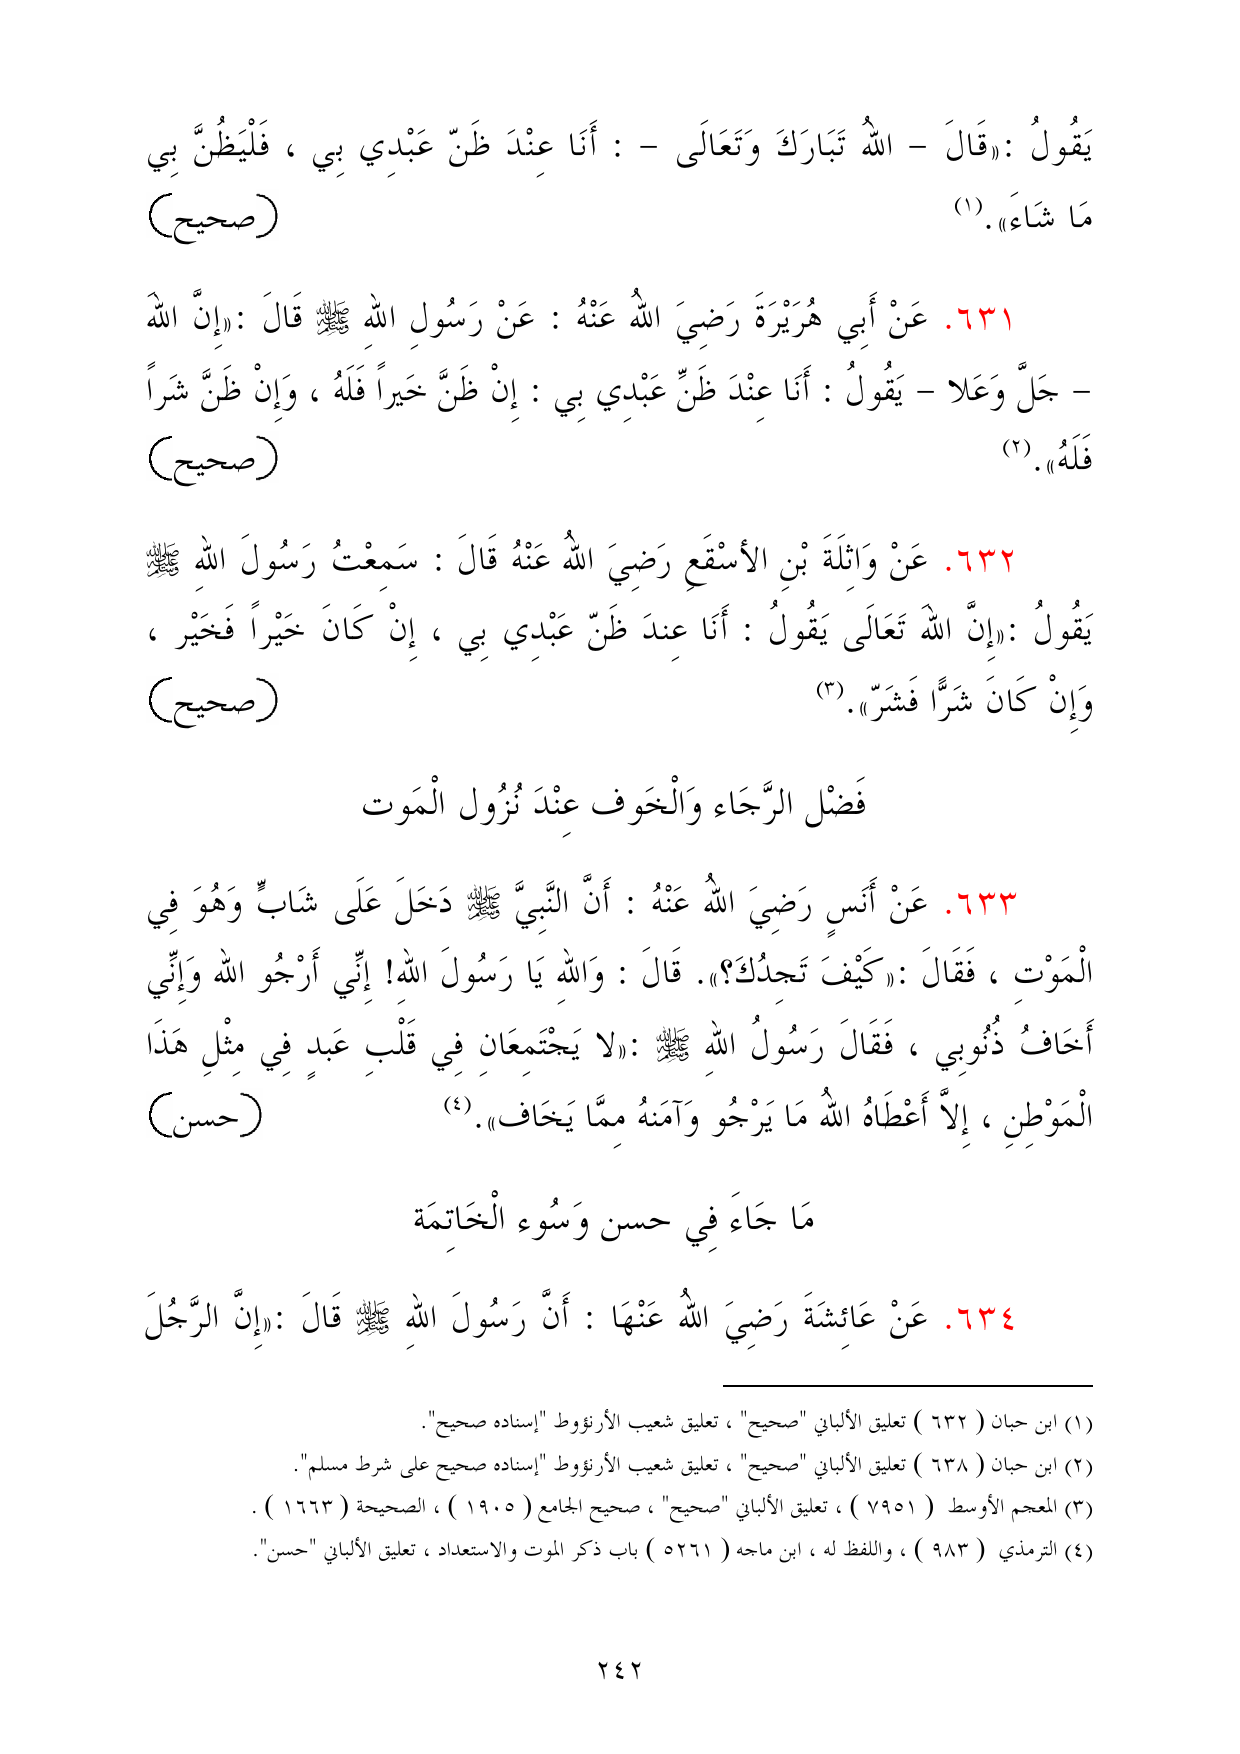 يَقُولُ :«قَالَ – اللهُ تَبَارَكَ وَتَعَالَى – : أَنَا عِنْدَ ظَنّ عَبْدِي بِي ، فَلْيَظُنَّ بِي
مَا شَاءَ».(١) (صحيح)
٦٣١. عَنْ أَبِي هُرَيْرَةَ رَضِيَ اللهُ عَنْهُ : عَنْ رَسُولِ اللهِ ﷺ قَالَ :«إِنَّ اللهَ
– جَلَّ وَعَلا – يَقُولُ : أَنَا عِنْدَ ظَنِّ عَبْدِي بِي : إِنْ ظَنَّ خَيراً فَلَهُ ، وَإِنْ ظَنَّ شَراً
فَلَهُ».(٢) (صحيح)
٦٣٢. عَنْ وَاثِلَةَ بْنِ الأسْقَعِ رَضِيَ اللهُ عَنْهُ قَالَ : سَمِعْتُ رَسُولَ اللهِ ﷺ
يَقُولُ :«إِنَّ اللهَ تَعَالَى يَقُولُ : أَنَا عِندَ ظَنّ عَبْدِي بِي ، إِنْ كَانَ خَيْراً فَخَيْر ،
وَإِنْ كَانَ شَرًّا فَشَرّ».(٣) (صحيح)
فَضْل الرَّجَاء وَالْخَوف عِنْدَ نُزُول الْمَوت
٦٣٣. عَنْ أَنَسٍ رَضِيَ اللهُ عَنْهُ : أَنَّ النَّبِيَّ ﷺ دَخَلَ عَلَى شَابٍّ وَهُوَ فِي
الْمَوْتِ ، فَقَالَ :«كَيْفَ تَجِدُكَ؟». قَالَ : وَاللهِ يَا رَسُولَ اللهِ! إِنِّي أَرْجُو الله وَإِنِّي
أَخَافُ ذُنُوبِي ، فَقَالَ رَسُولُ اللهِ ﷺ :«لا يَجْتَمِعَانِ فِي قَلْبِ عَبدٍ فِي مِثْلِ هَذَا
الْمَوْطِنِ ، إِلاَّ أَعْطَاهُ اللهُ مَا يَرْجُو وَآمَنهُ مِمَّا يَخَاف».(٤) (حسن)
مَا جَاءَ فِي حسن وَسُوء الْخَاتِمَة
٦٣٤. عَنْ عَائِشَةَ رَضِيَ اللهُ عَنْهَا : أَنَّ رَسُولَ اللهِ ﷺ قَالَ :«إِنَّ الرَّجُلَ
(١) ابن حبان ( ٦٣٢ ) تعليق الألباني "صحيح" ، تعليق شعيب الأرنؤوط "إسناده صحيح".
(٢) ابن حبان ( ٦٣٨ ) تعليق الألباني "صحيح" ، تعليق شعيب الأرنؤوط "إسناده صحيح على شرط مسلم".
(٣) المعجم الأوسط ( ٧٩٥١ ) ، تعليق الألباني "صحيح" ، صحيح الجامع ( ١٩٠٥ ) ، الصحيحة ( ١٦٦٣ ) .
(٤) الترمذي ( ٩٨٣ ) ، واللفظ له ، ابن ماجه ( ٥٢٦١ ) باب ذكر الموت والاستعداد ، تعليق الألباني "حسن".
٢٤٢